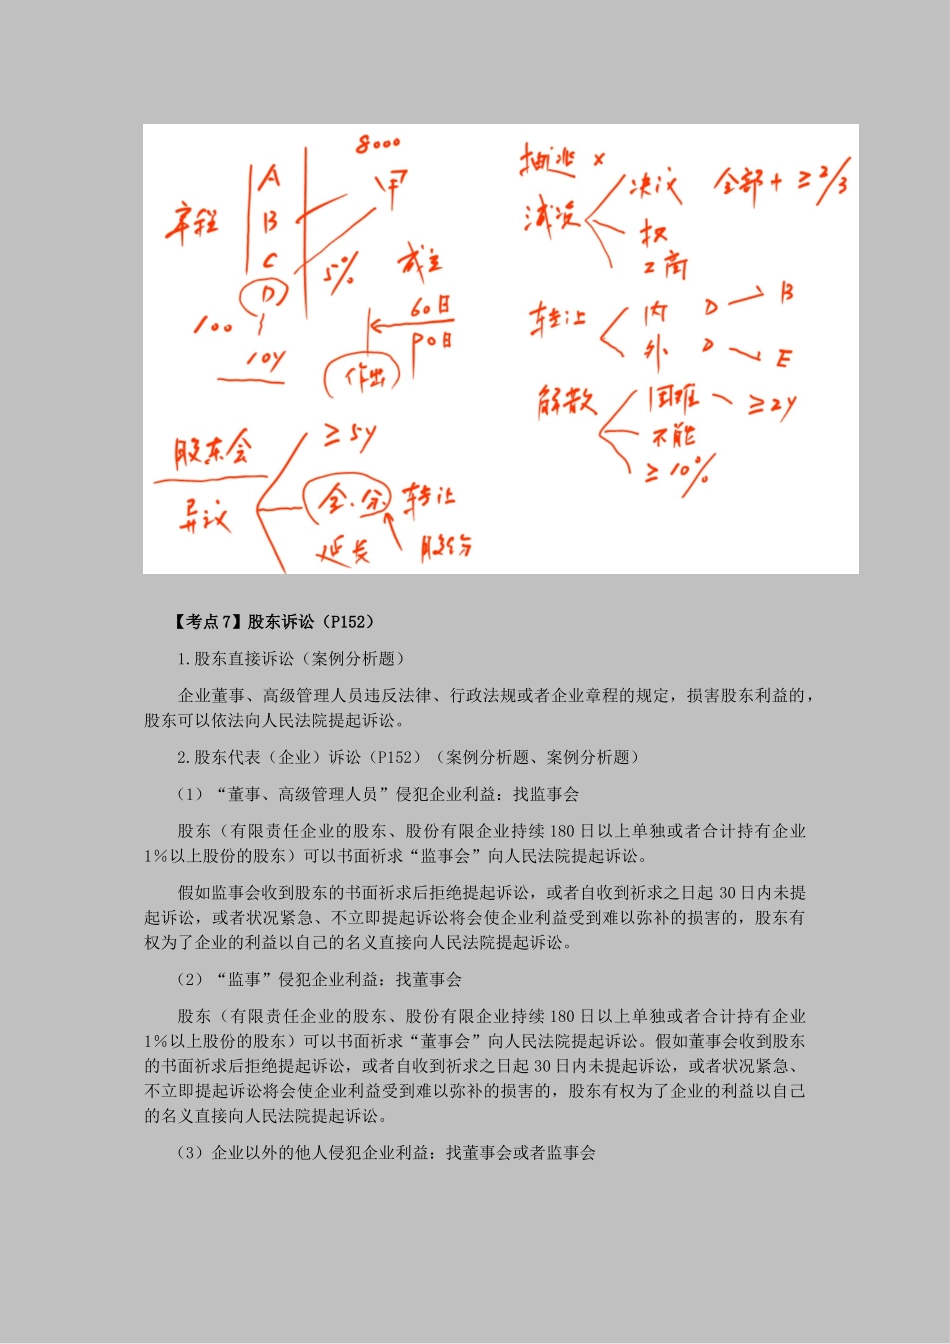 8000
A
甲
章程
B
C
5%
成立
D
100
60日
90日
10y
作出
股东会
≥5y
异议
全、分
转让
延长
股份
抽逃 ×
减资
决议 全部+≥2/3
权
工商
转让
内 D B
外 D E
解散
困难 ≥2y
不能
≥10%
【考点7】股东诉讼（P152）
1.股东直接诉讼（案例分析题）
企业董事、高级管理人员违反法律、行政法规或者企业章程的规定，损害股东利益的，
股东可以依法向人民法院提起诉讼。
2.股东代表（企业）诉讼（P152）（案例分析题、案例分析题）
（1）“董事、高级管理人员”侵犯企业利益：找监事会
股东（有限责任企业的股东、股份有限企业持续 180 日以上单独或者合计持有企业
1％以上股份的股东）可以书面祈求“监事会”向人民法院提起诉讼。
假如监事会收到股东的书面祈求后拒绝提起诉讼，或者自收到祈求之日起 30 日内未提
起诉讼，或者状况紧急、不立即提起诉讼将会使企业利益受到难以弥补的损害的，股东有
权为了企业的利益以自己的名义直接向人民法院提起诉讼。
（2）“监事”侵犯企业利益：找董事会
股东（有限责任企业的股东、股份有限企业持续 180 日以上单独或者合计持有企业
1％以上股份的股东）可以书面祈求“董事会”向人民法院提起诉讼。假如董事会收到股东
的书面祈求后拒绝提起诉讼，或者自收到祈求之日起 30 日内未提起诉讼，或者状况紧急、
不立即提起诉讼将会使企业利益受到难以弥补的损害的，股东有权为了企业的利益以自己
的名义直接向人民法院提起诉讼。
（3）企业以外的他人侵犯企业利益：找董事会或者监事会